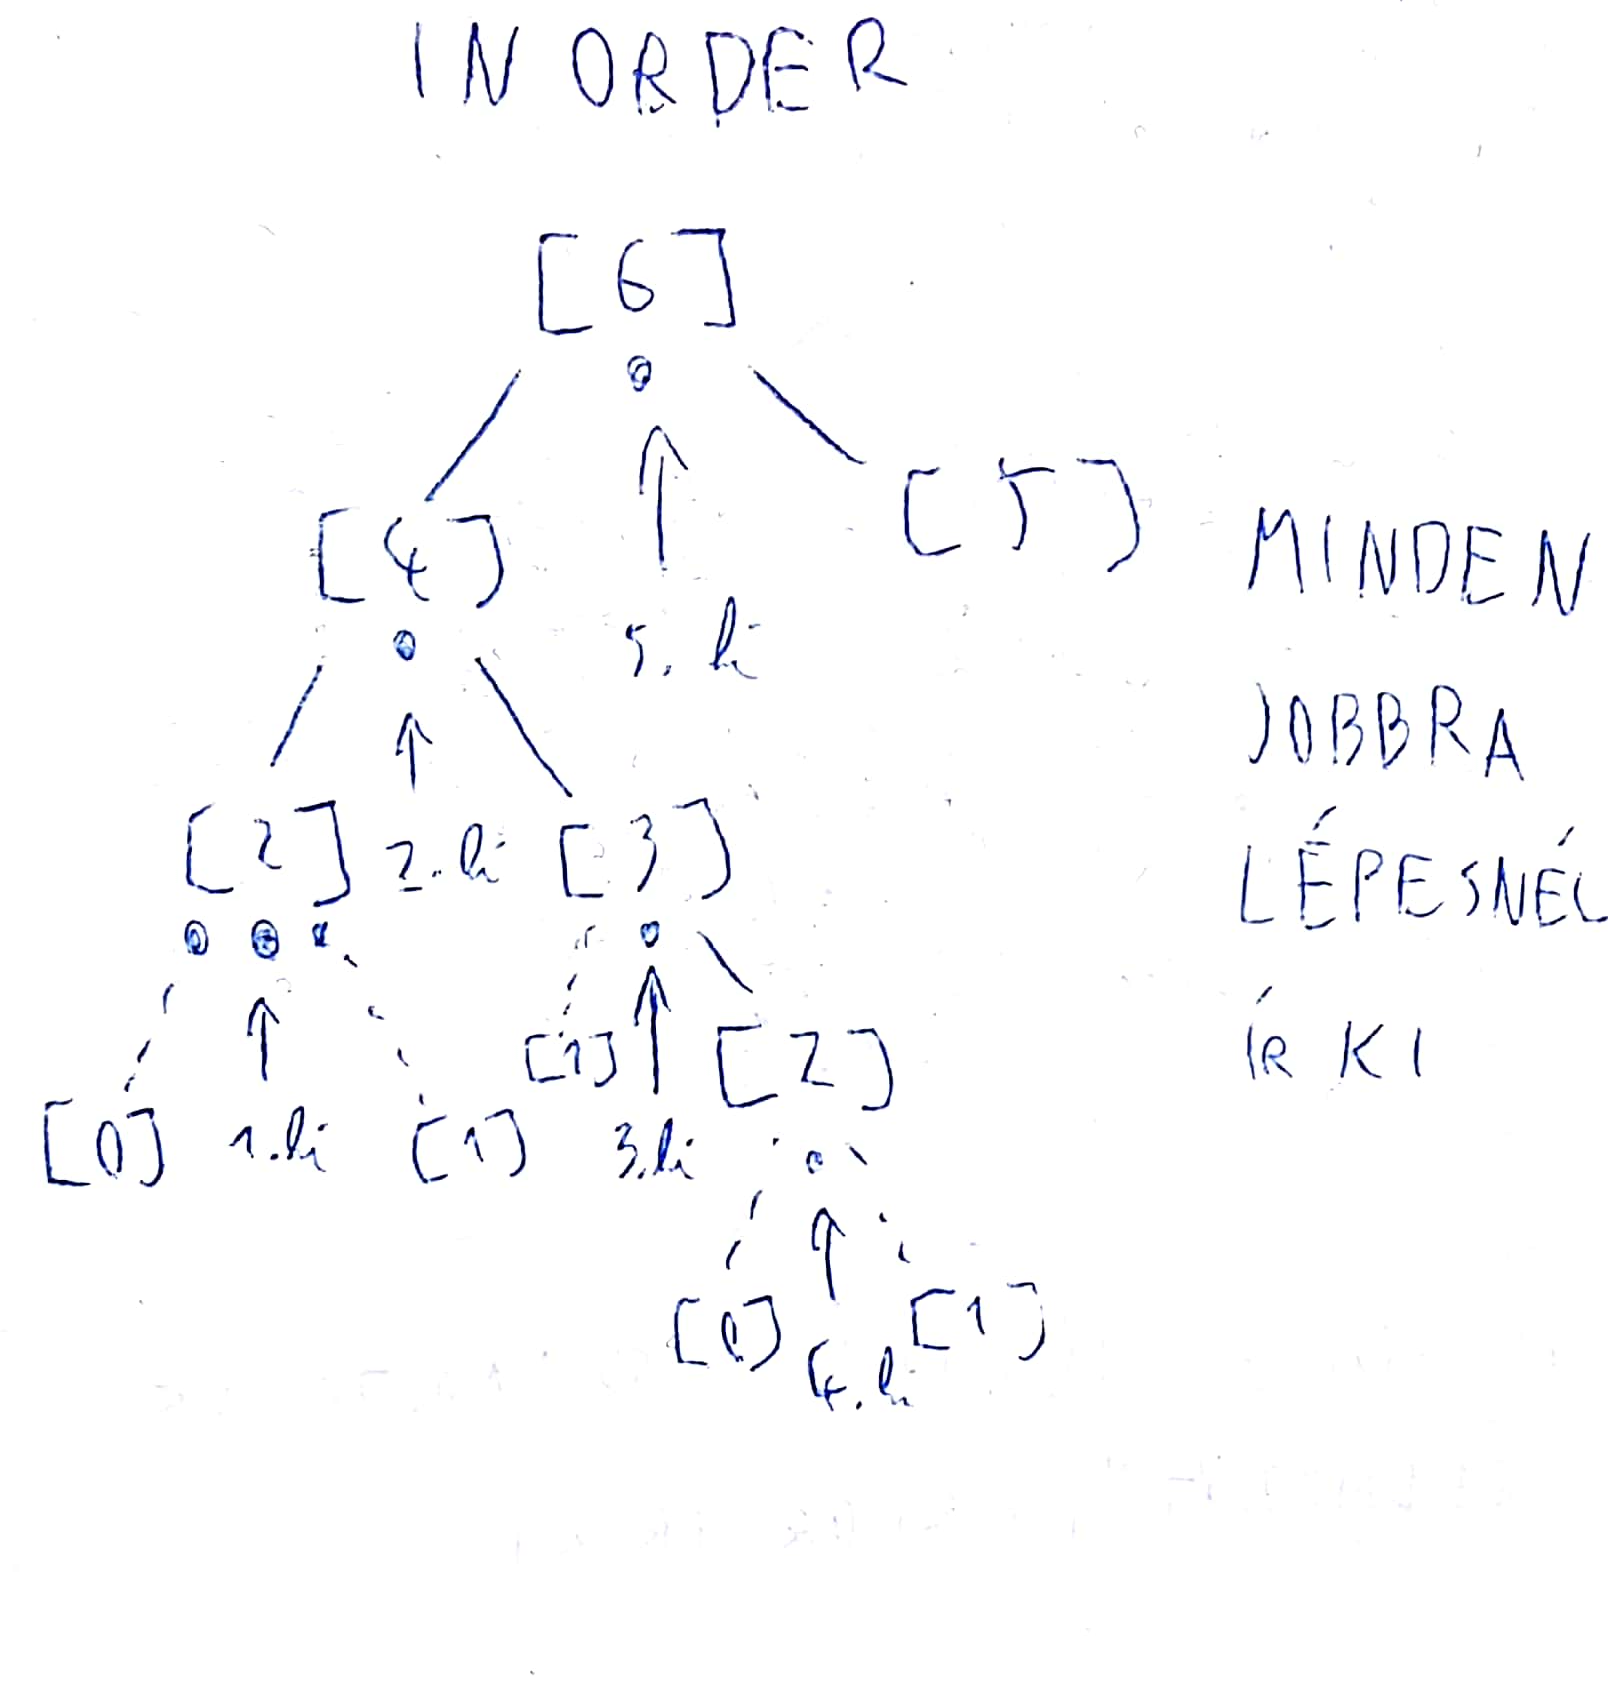 IN ORDER
[6]
[4]
[5]
5. ki
[2] 2. ki [3]
[1] [2]
[0] 1. ki [1] 3. ki
[0] 4. ki [1]
MINDEN
JOBBRA
LÉPESNÉL
ÍR KI